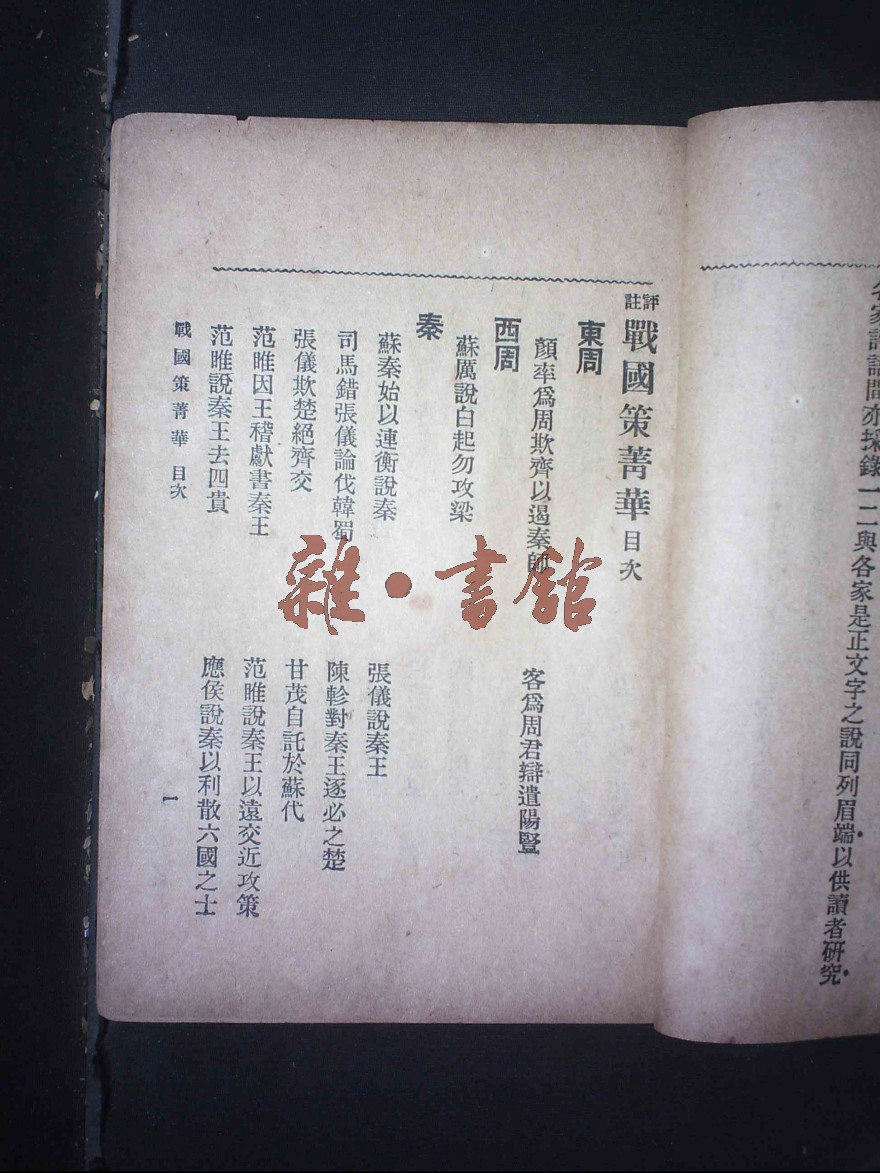 各家評語間亦採錄一二與各家是正文字之說同列眉端以供讀者研究
評註戰國策菁華 目次
東周
顏率為周欺齊以遏秦師
客為周君辯遣陽豎
西周
蘇厲說白起勿攻梁
秦
蘇秦始以連衡說秦
張儀說秦王
司馬錯張儀論伐韓蜀
陳軫對秦王逐必之楚
張儀欺楚絕齊交
甘茂自託於蘇代
范睢因王稽獻書秦王
范睢說秦王以遠交近攻策
范睢說秦王去四貴
應侯說秦以利散六國之士
戰國策菁華 目次
一
雜·書館